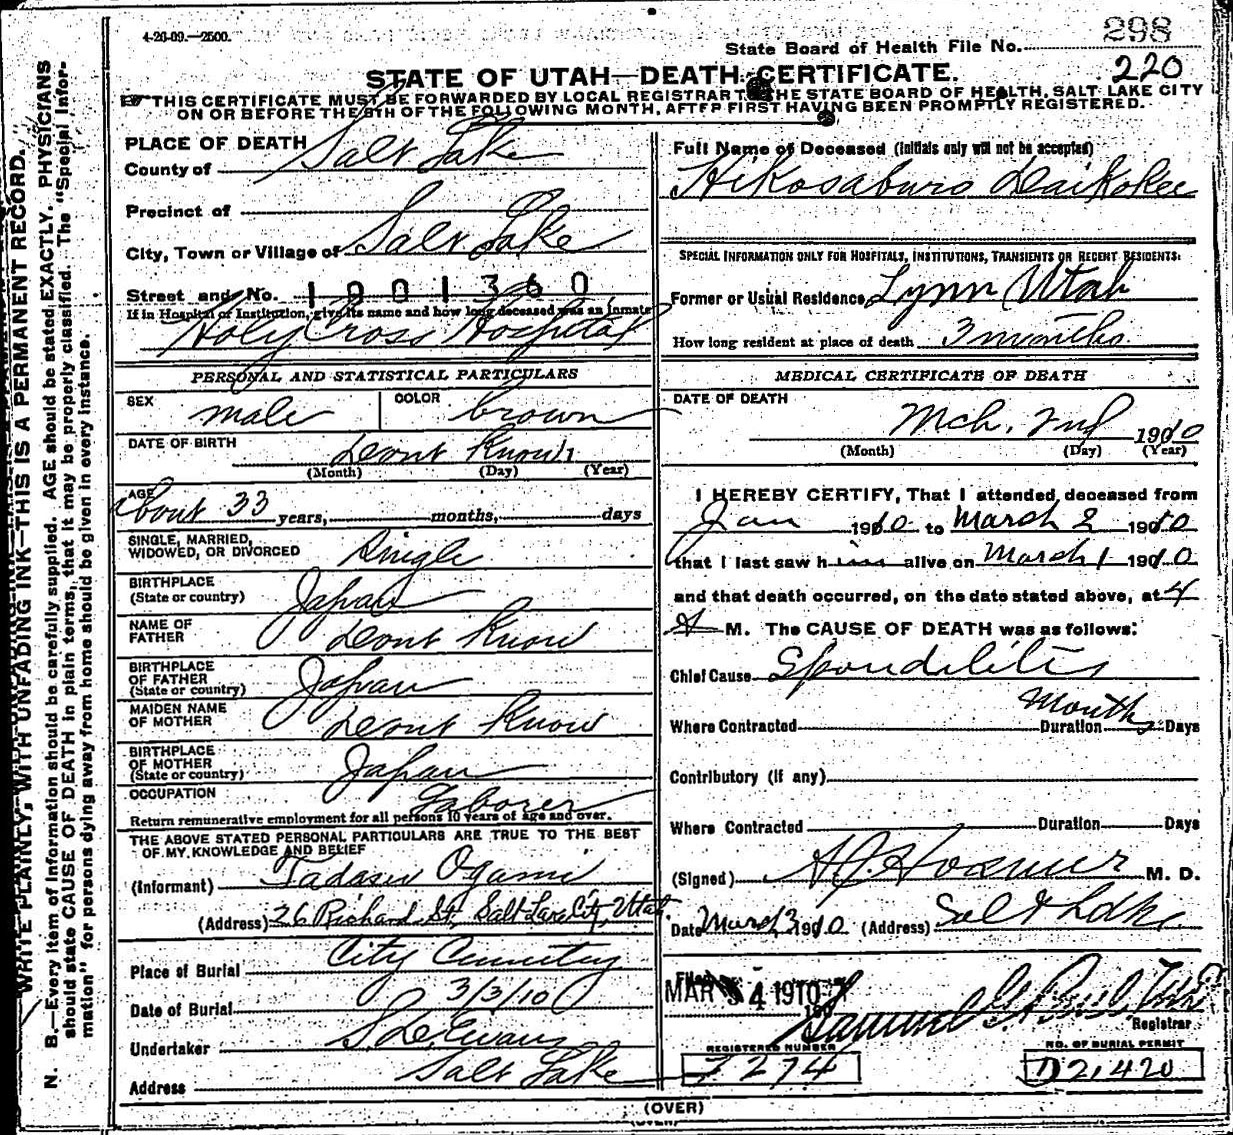 4-26-09.—2500.
298
State Board of Health File No.
220
STATE OF UTAH—DEATH CERTIFICATE.
THIS CERTIFICATE MUST BE FORWARDED BY LOCAL REGISTRAR TO THE STATE BOARD OF HEALTH, SALT LAKE CITY
ON OR BEFORE THE 5TH OF THE FOLLOWING MONTH, AFTER FIRST HAVING BEEN PROMPTLY REGISTERED.
WRITE PLAINLY, WITH UNFADING INK—THIS IS A PERMANENT RECORD.
N. B.—Every item of information should be carefully supplied. AGE should be stated EXACTLY. PHYSICIANS
should state CAUSE OF DEATH in plain terms, that it may be properly classified. The "Special Infor-
mation" for persons dying away from home should be given in every instance.
PLACE OF DEATH
County of Salt Lake
Precinct of
City, Town or Village of Salt Lake
Street and No. 1001360
If in Hospital or Institution, give its name and how long deceased was an inmate
Holy Cross Hospital
PERSONAL AND STATISTICAL PARTICULARS
SEX male COLOR brown
DATE OF BIRTH Dont Know
(Month) (Day) (Year)
AGE About 33 years, months, days
SINGLE, MARRIED,
WIDOWED, OR DIVORCED Single
BIRTHPLACE
(State or country) Japan
NAME OF
FATHER Dont Know
BIRTHPLACE
OF FATHER
(State or country) Japan
MAIDEN NAME
OF MOTHER Dont Know
BIRTHPLACE
OF MOTHER
(State or country) Japan
OCCUPATION Laborer
Return remunerative employment for all persons 10 years of age and over.
THE ABOVE STATED PERSONAL PARTICULARS ARE TRUE TO THE BEST
OF MY KNOWLEDGE AND BELIEF
(Informant) Tadasu Ogami
(Address) 26 Richard St, Salt Lake City, Utah.
Place of Burial City Cemetery
Date of Burial 3/3/10
Undertaker S D Evans
Address Salt Lake
Full Name of Deceased (initials only will not be accepted)
Hikosaburo Daikokee
SPECIAL INFORMATION ONLY FOR HOSPITALS, INSTITUTIONS, TRANSIENTS OR RECENT RESIDENTS:
Former or Usual Residence Lynn Utah
How long resident at place of death 3 months
MEDICAL CERTIFICATE OF DEATH
DATE OF DEATH
Mch. 2nd 1910
(Month) (Day) (Year)
I HEREBY CERTIFY, That I attended deceased from
Jan 1910 to March 2 1910
that I last saw him alive on March 1 1910
and that death occurred, on the date stated above, at 4
A M. The CAUSE OF DEATH was as follows:
Chief Cause Spondilitis
Where Contracted Duration Months Days
Contributory (if any)
Where Contracted Duration Days
(Signed) M. D.
Date March 3 1910 (Address) Salt Lake
Filed
MAR 4 1910
Registrar
REGISTERED NUMBER
NO. OF BURIAL PERMIT
7274
D21420
(OVER)